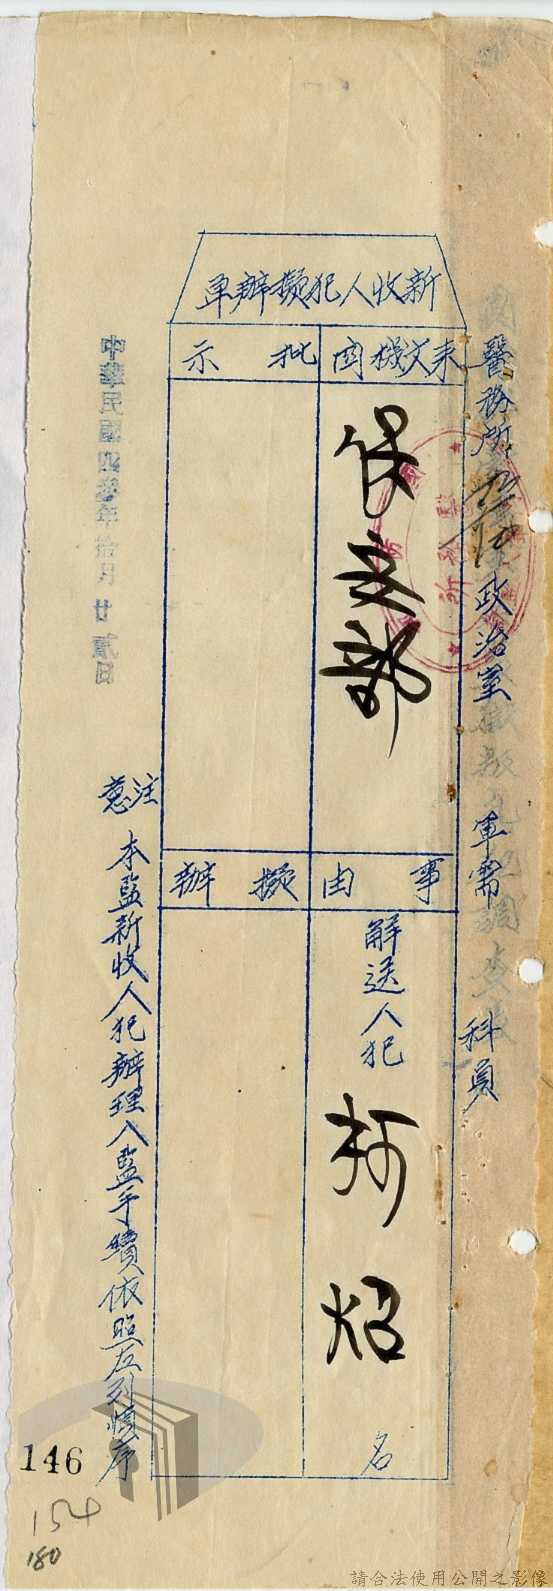 新收人犯擬辦单
醫務所
政治室
軍需
科員
來文機関
保安部
事由
解送人犯
柯炤
名
批示
擬辦
注意
本監新收人犯辦理入監手續依照左列慎序
中華民國四叁年拾月廿貳日
146
154
180
請合法使用公開之影像